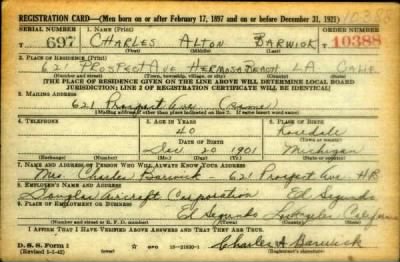 REGISTRATION CARD—(Men born on or after February 17, 1897 and on or before December 31, 1921)
SERIAL NUMBER 1. NAME (Print) ORDER NUMBER
T 697 CHARLES ALTON BARWICK 10388
(First) (Middle) (Last)
2. PLACE OF RESIDENCE (Print)
621 PROSPECT AVE HERMOSA BEACH LA CALIF
(Number and street) (Town, township, village, or city) (County) (State)
[THE PLACE OF RESIDENCE GIVEN ON THE LINE ABOVE WILL DETERMINE LOCAL BOARD
JURISDICTION; LINE 2 OF REGISTRATION CERTIFICATE WILL BE IDENTICAL]
3. MAILING ADDRESS
621 Prospect Ave (Same)
[Mailing address if other than place indicated on line 2. If same insert word same]
4. TELEPHONE 5. AGE IN YEARS 6. PLACE OF BIRTH
40 Rosedale
DATE OF BIRTH (Town or county)
Dec 20 1901 Michigan
(Exchange) (Number) (Mo.) (Day) (Yr.) (State or country)
7. NAME AND ADDRESS OF PERSON WHO WILL ALWAYS KNOW YOUR ADDRESS
Mrs. Charles Barwick - 621 Prospect Ave - HB
8. EMPLOYER'S NAME AND ADDRESS
Douglas Aircraft Corporation El Segundo
9. PLACE OF EMPLOYMENT OR BUSINESS
El Segundo Los Angeles California
(Number and street or R. F. D. number) (Town) (County) (State)
I AFFIRM THAT I HAVE VERIFIED ABOVE ANSWERS AND THAT THEY ARE TRUE.
D. S. S. Form 1 Charles A Barwick
(Revised 1-1-42) (Registrant's signature)